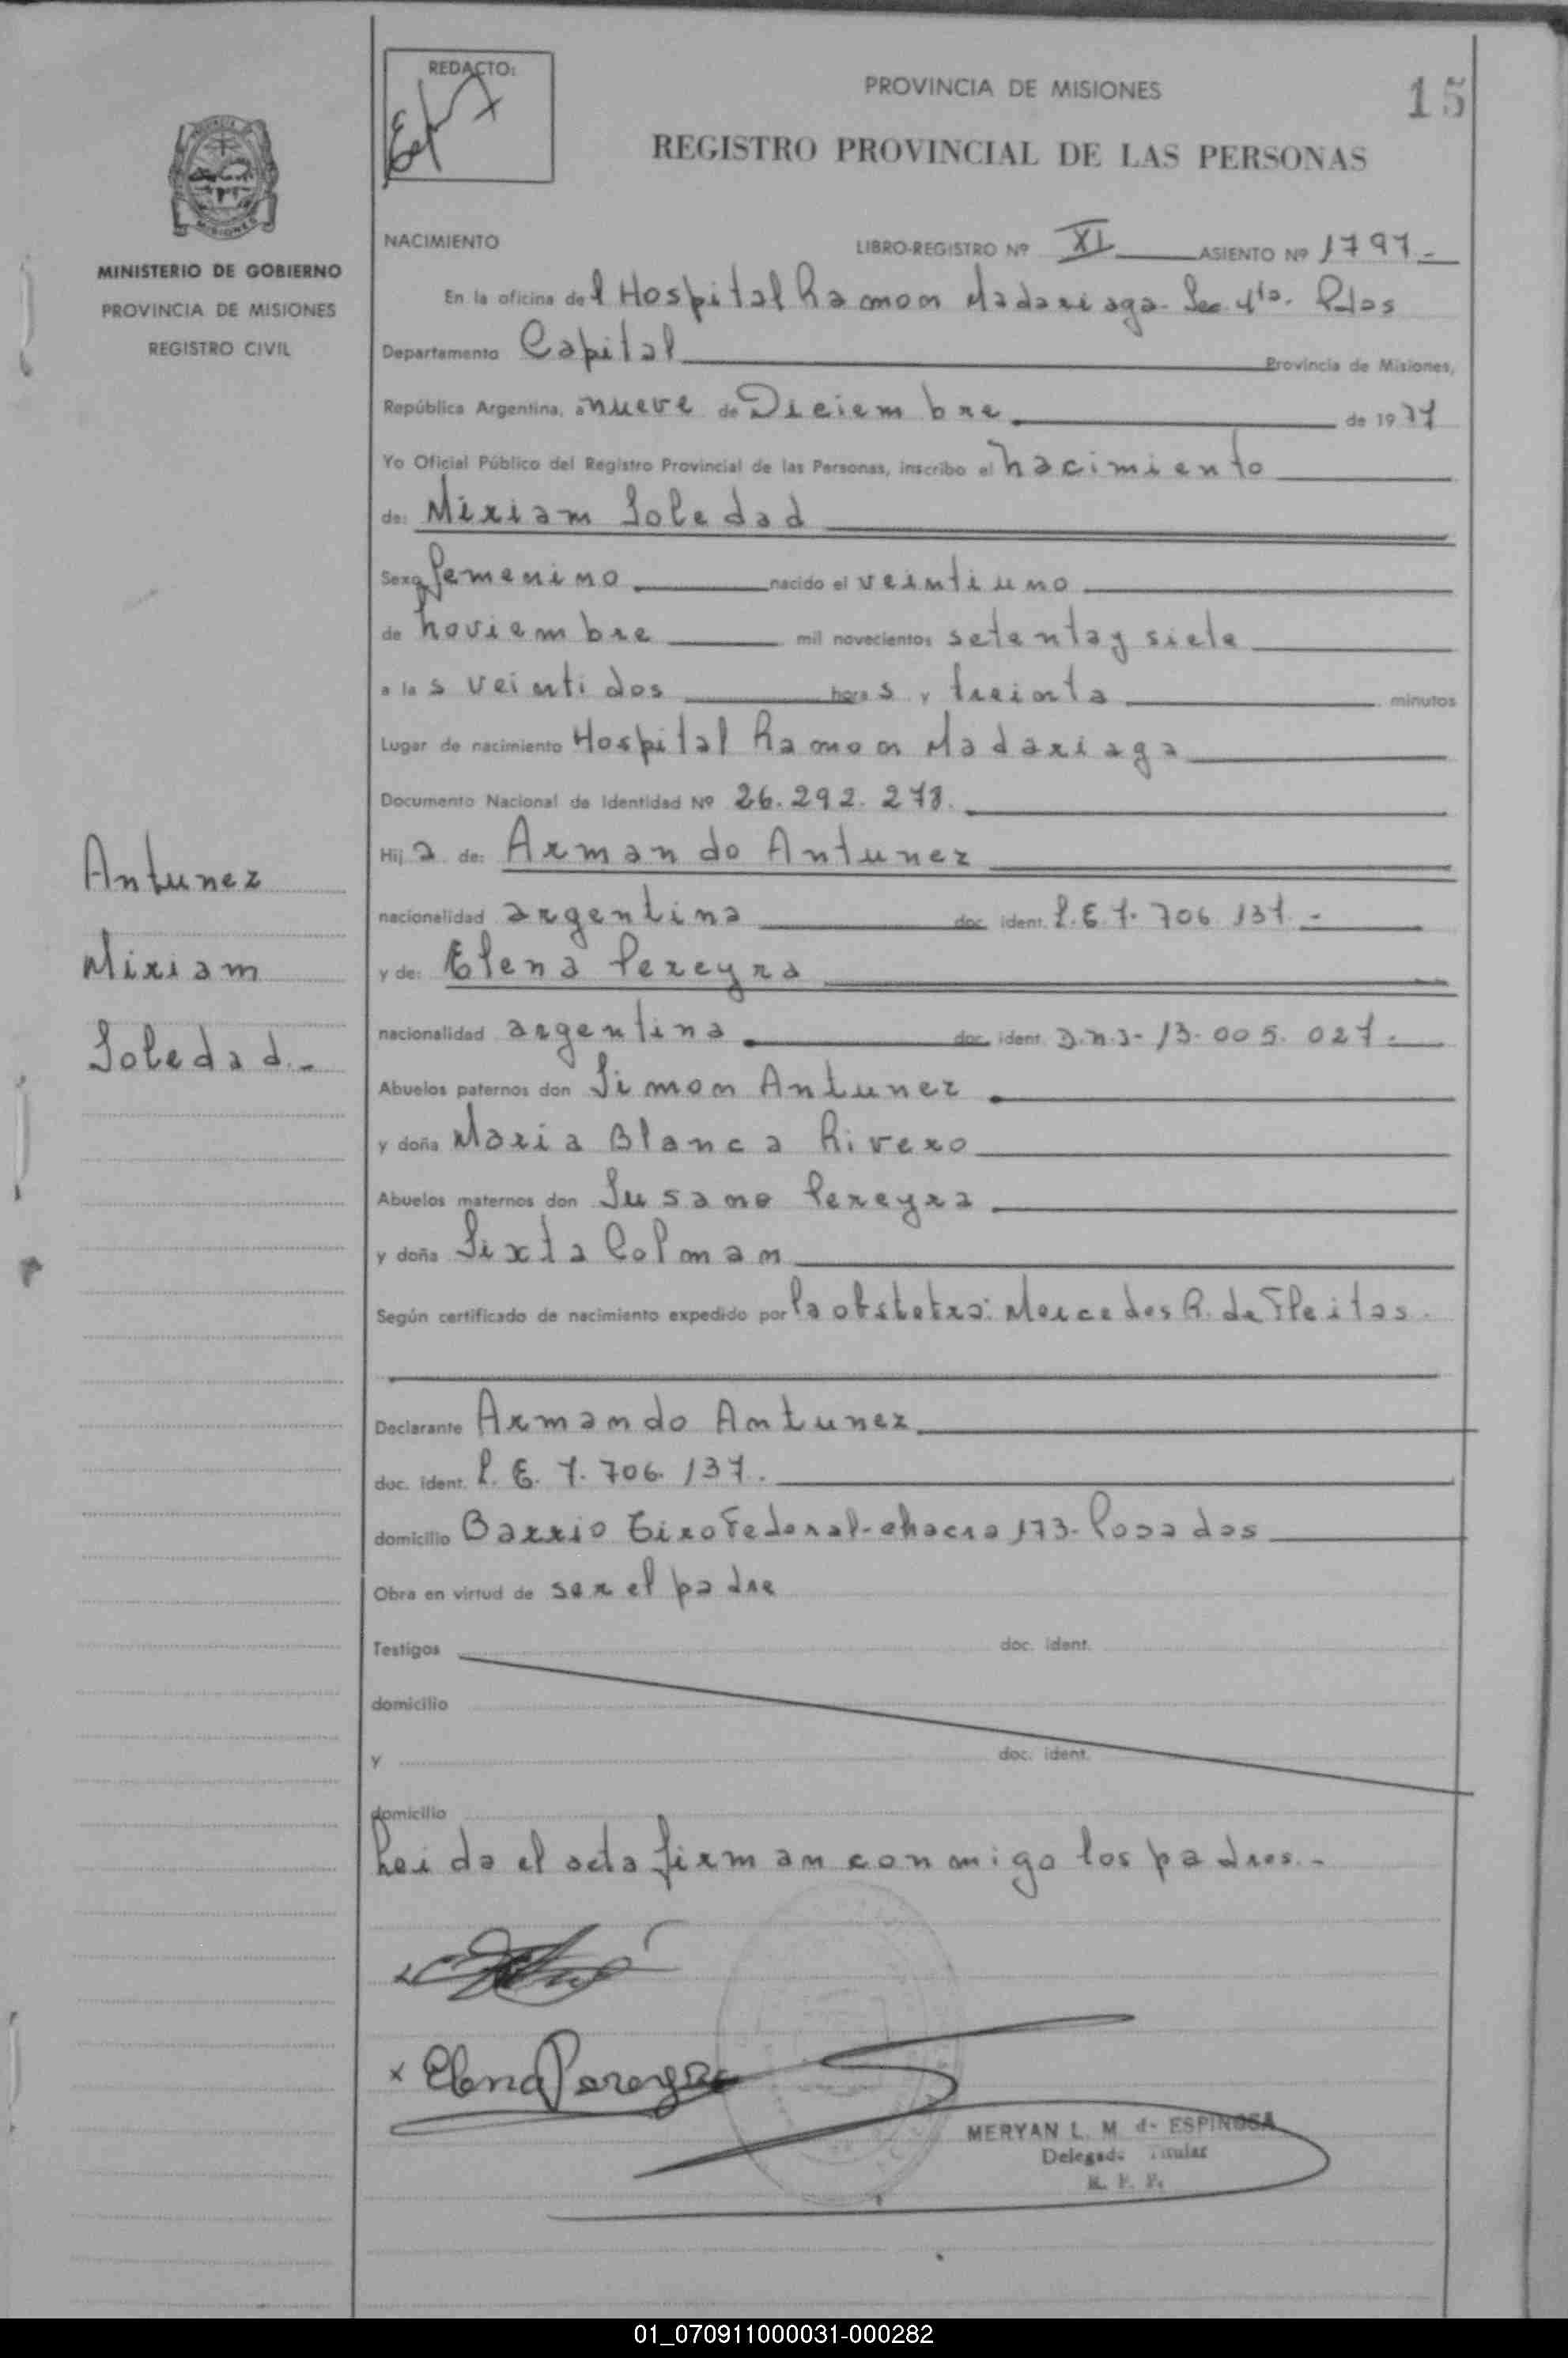 REDACTO:
PROVINCIA DE MISIONES
15
REGISTRO PROVINCIAL DE LAS PERSONAS
MINISTERIO DE GOBIERNO
PROVINCIA DE MISIONES
REGISTRO CIVIL
NACIMIENTO LIBRO-REGISTRO Nº XI ASIENTO Nº 1797.-
En la oficina del Hospital Ramon Madariaga. Sec. 4ta. Pdas
Departamento Capital Provincia de Misiones,
República Argentina, a nueve de Diciembre de 1977
Yo Oficial Público del Registro Provincial de las Personas, inscribo el nacimiento
de: Miriam Soledad
Sexo femenino nacido el veintiuno
de noviembre mil novecientos setenta y siete
a las veintidos horas y treinta minutos
Lugar de nacimiento Hospital Ramon Madariaga
Documento Nacional de Identidad Nº 26.292.278.
Hija de: Armando Antunez
nacionalidad argentina doc. ident. L.E. 7.706.137.-
y de: Elena Pereyra
nacionalidad argentina doc. ident. D.N.I- 13.005.027.-
Abuelos paternos don Simon Antunez
y doña Maria Blanca Rivero
Abuelos maternos don Susano Pereyra
y doña Sixta Colman
Según certificado de nacimiento expedido por la obstetra: Mercedes R. de Fleitas.
Declarante Armando Antunez
doc. ident. L.E. 7.706.137.
domicilio Barrio Tiro Federal-chacra 173-Posadas
Obra en virtud de ser el padre
Testigos doc. ident.
domicilio
y doc. ident.
domicilio
Leida el acta firman conmigo los padres.-
Antunez
Miriam
Soledad.-
x Elena Pereyra
MERYAN L. M. de ESPINOSA
Delegada Titular
R. P. P.
01_070911000031-000282